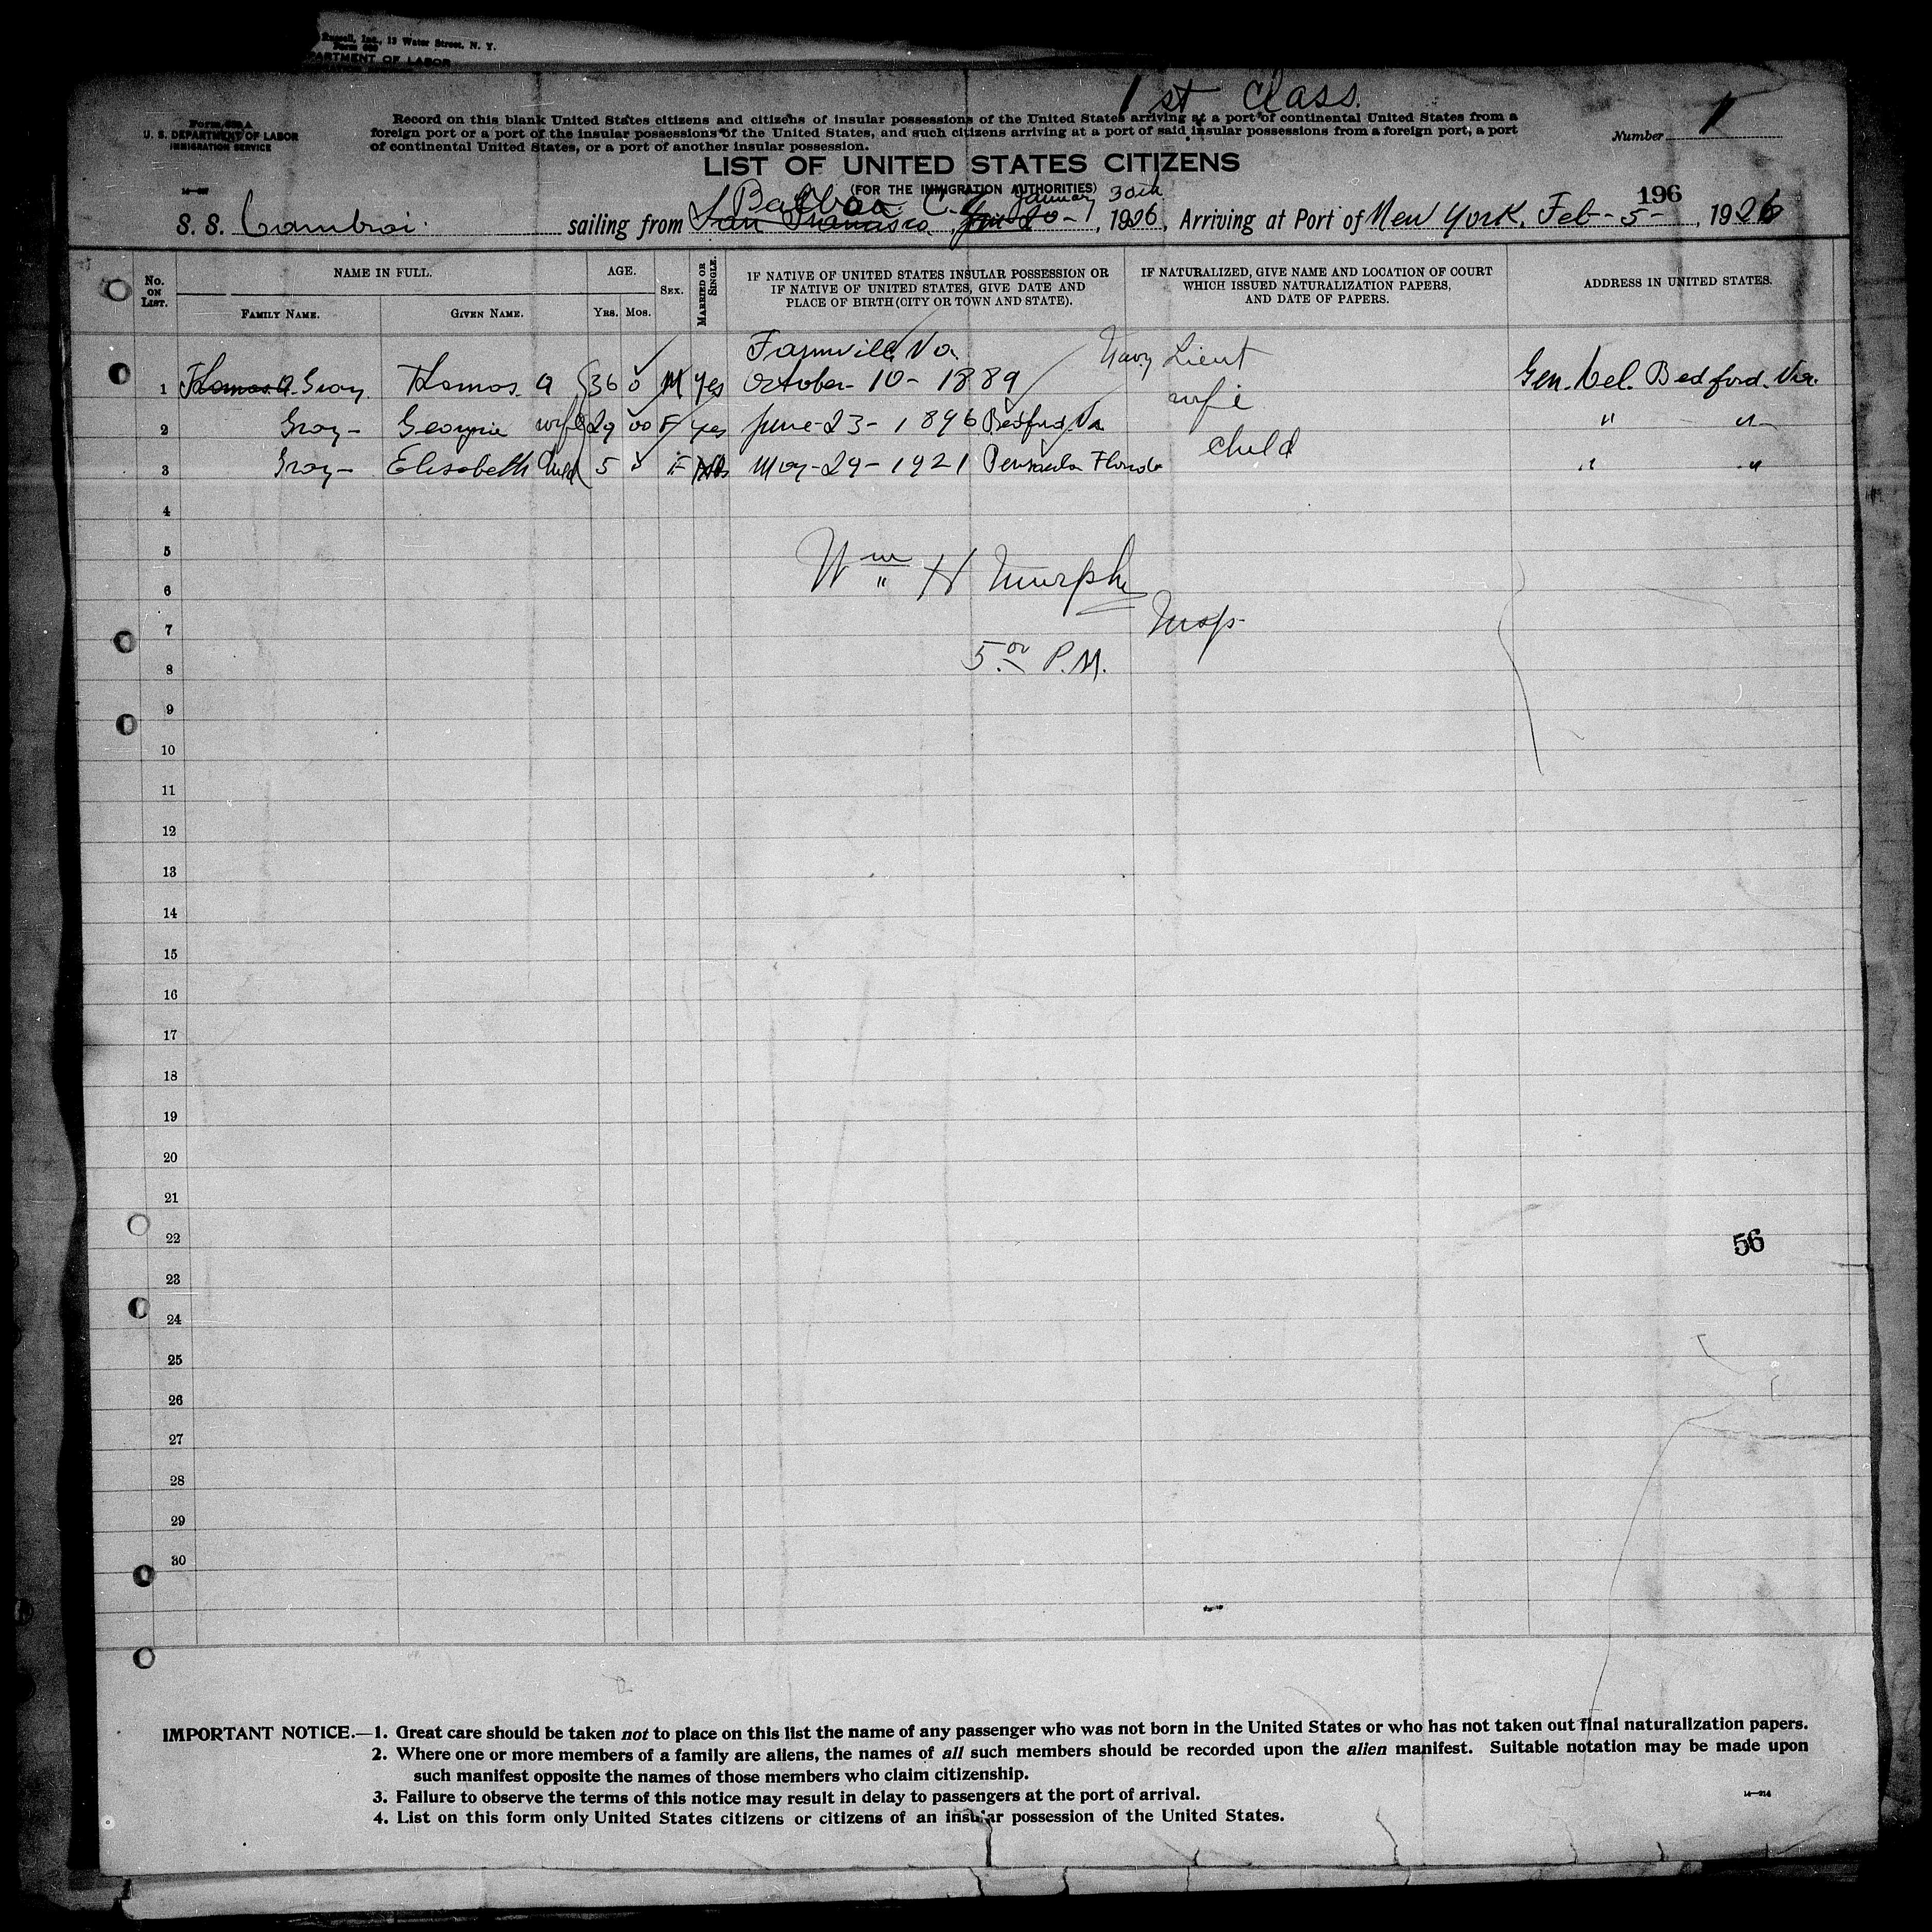 Russell, Inc., 13 Water Street, N. Y.
Form 630
DEPARTMENT OF LABOR
1st Class.
Form 630 A
U. S. DEPARTMENT OF LABOR
IMMIGRATION SERVICE
Record on this blank United States citizens and citizens of insular possessions of the United States arriving at a port of continental United States from a
foreign port or a port of the insular possessions of the United States, and such citizens arriving at a port of said insular possessions from a foreign port, a port
of continental United States, or a port of another insular possession.
Number 1
LIST OF UNITED STATES CITIZENS
(FOR THE IMMIGRATION AUTHORITIES)
196
Balboa. C.Z. January 30th
S. S. Cambrai. sailing from San Francisco, Jan 20-, 1926, Arriving at Port of New York. Feb-5-, 1926
No. ON LIST.
NAME IN FULL.
FAMILY NAME.
GIVEN NAME.
AGE.
YRS. MOS.
SEX.
MARRIED OR SINGLE.
IF NATIVE OF UNITED STATES INSULAR POSSESSION OR
IF NATIVE OF UNITED STATES, GIVE DATE AND
PLACE OF BIRTH (CITY OR TOWN AND STATE).
IF NATURALIZED, GIVE NAME AND LOCATION OF COURT
WHICH ISSUED NATURALIZATION PAPERS,
AND DATE OF PAPERS.
ADDRESS IN UNITED STATES.
Farmville Va. Navy Lieut
1 Thomas A. Gray. Thomas. A 36 0 M Yes October-10-1889 Gen. Del. Bedford. Va.
wife
2 Gray- Georgie wife 29 00 F Yes June-23-1896 Bedford. Va " "
child
3 Gray- Elisabeth Child 5 F No May-29-1921 Pensacola Florida " "
4
5
Wm H Murphy
6
7 Insp-
8 5.00 P.M.
9
10
11
12
13
14
15
16
17
18
19
20
21
22 56
23
24
25
26
27
28
29
30
IMPORTANT NOTICE.—1. Great care should be taken not to place on this list the name of any passenger who was not born in the United States or who has not taken out final naturalization papers.
2. Where one or more members of a family are aliens, the names of all such members should be recorded upon the alien manifest. Suitable notation may be made upon
such manifest opposite the names of those members who claim citizenship.
3. Failure to observe the terms of this notice may result in delay to passengers at the port of arrival.
4. List on this form only United States citizens or citizens of an insular possession of the United States.
14—214